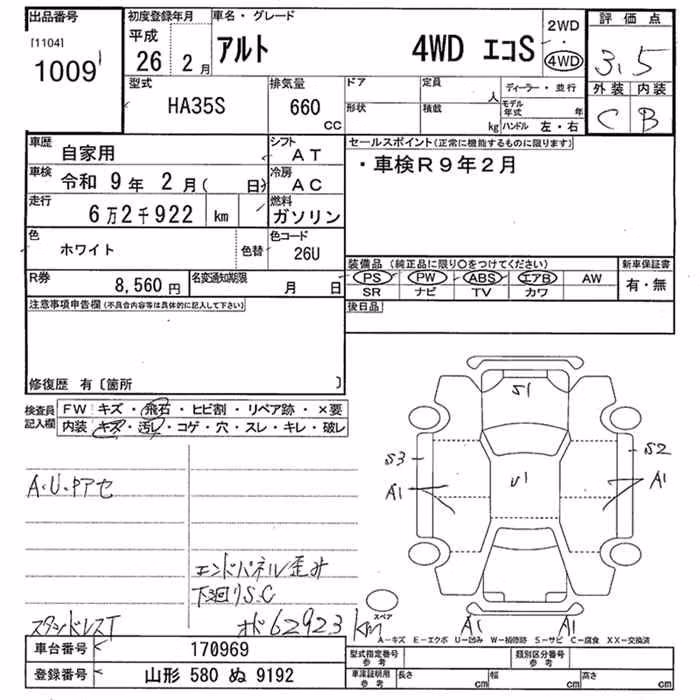 出品番号
[1104]
1009
初度登録年月
平成
26 2月
車名・グレード
アルト 4WD エコS
2WD
・
4WD
評価点
3.5
外装 内装
C B
型式
HA35S
排気量
660
cc
ドア
形状
定員
人
積載
kg
ディーラー・並行
モデル年式 年
ハンドル 左・右
車歴
自家用
シフト
AT
車検
令和 9年 2月( 日)
冷房
AC
走行
6万2千922 km
燃料
ガソリン
色
ホワイト
色替
色コード
26U
R券
8,560円
名変通知期限
月 日
セールスポイント(正常に機能するものに限ります)
・車検R9年2月
装備品(純正品に限り○をつけてください)
PS PW ABS エアB AW
SR ナビ TV カワ
新車保証書
有・無
後日品
注意事項申告欄(不具合内容等は具体的に記入して下さい)
修復歴 有〔箇所 〕
検査員
記入欄
FW キズ・飛石・ヒビ割・リペア跡・×要
内装 キズ・汚れ・コゲ・穴・スレ・キレ・破レ
A・U・Pアセ
エンドパネル歪み
下廻りS.C
スタッドレスT
オド62923km
S1
S3
S2
A1
U1
A1
A1
A1
スペア
A-キズ E-エクボ U-凹み W-補修跡 S-サビ C-腐食 XX-交換済
車台番号 170969
登録番号 山形 580 ぬ 9192
型式指定番号
参考
類別区分番号
参考
車庫証明用
参考
長さ cm
幅 cm
高さ cm